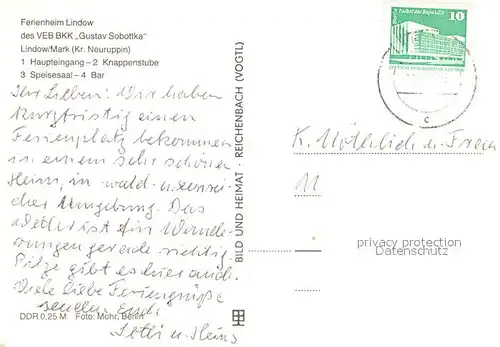 Ferienheim Lindow
des VEB BKK „Gustav Sobottka"
Lindow/Mark (Kr. Neuruppin)
1 Haupteingang – 2 Knappenstube
3 Speisesaal – 4 Bar
Ihr Lieben! Wir haben
kurzfristig einen
Ferienplatz bekommen
in einem sehr schönen
Heim, in wald- u. seenrei-
cher Umgebung. Das
Wetter ist für Wande-
rungen gerade richtig.
Pilze gibt es hier auch.
Viele liebe Feriengrüße
senden Euch
u. Heinz
DDR 0,25 M Foto: Mohr, Berlin
BILD UND HEIMAT · REICHENBACH (VOGTL)
Palast der Republik
10
C
K. u. Frau
privacy protection
Datenschutz